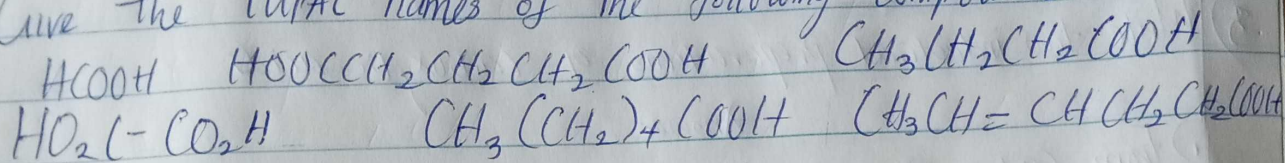 Give The IUPAC names of the following
HCOOH HOOCCH₂CH₂CH₂COOH CH₃CH₂CH₂COOH
HO₂C-CO₂H CH₃(CH₂)₄COOH CH₃CH=CHCH₂CH₂COOH